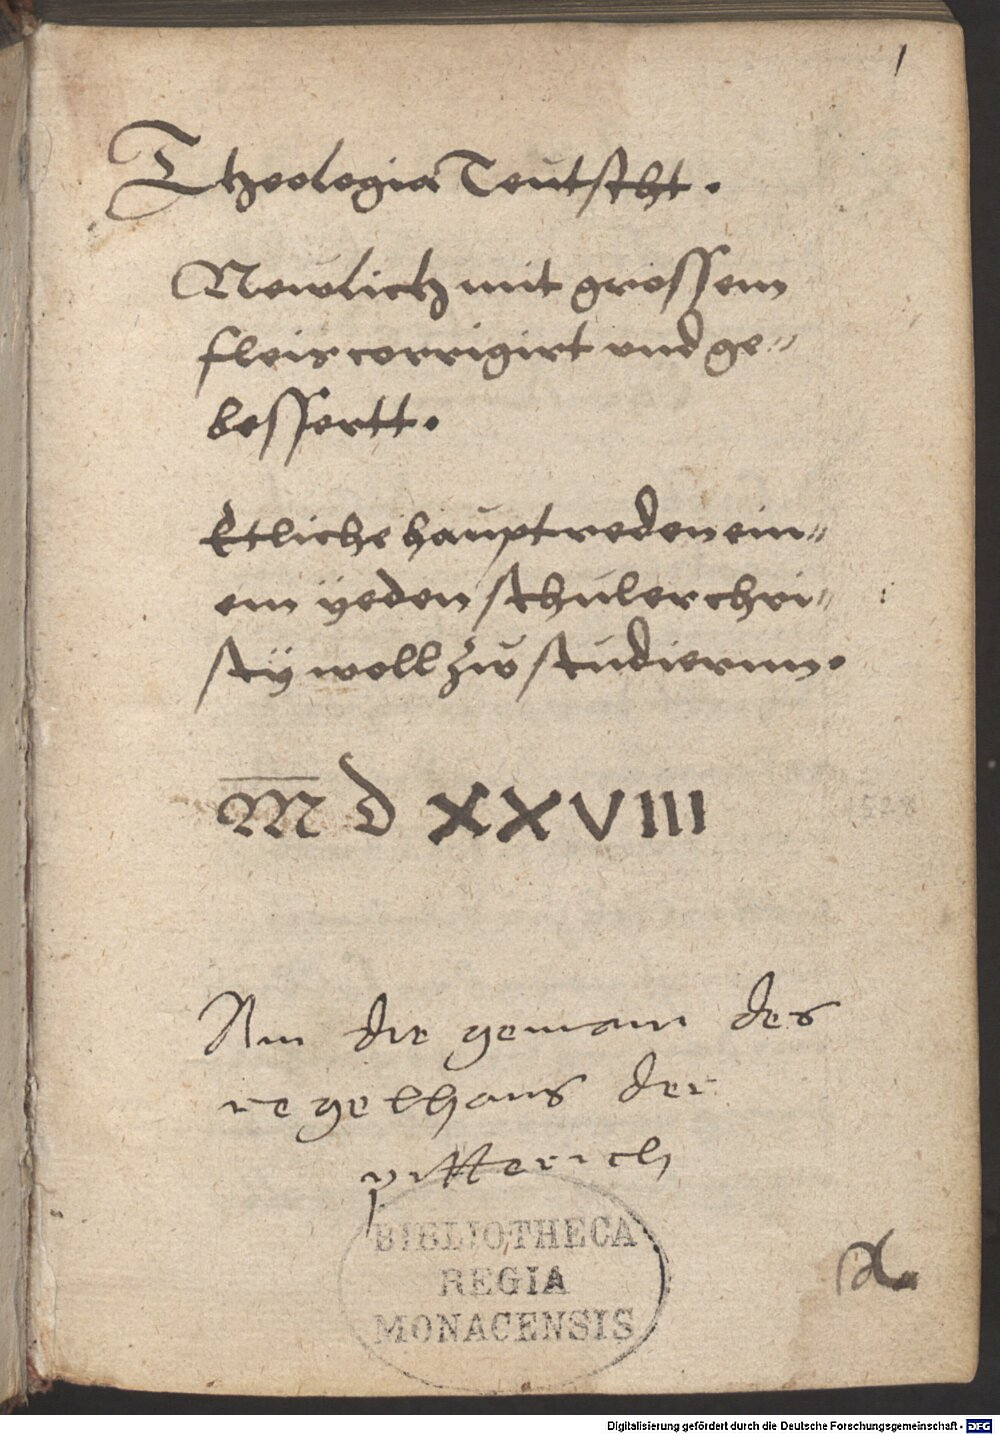 1
Theologia Teutscht.
Newlich mit grossem
fleis corrigirt und ge⸗
bessertt.
Etliche hauptreden ein⸗
em yeden schuler chri⸗
stÿ woll zw studiernn.
M D XXVIII
1528
Ann die gemain des
regelhaus der
pitterich
BIBLIOTHECA
REGIA
MONACENSIS
Digitalisierung gefördert durch die Deutsche Forschungsgemeinschaft - DFG